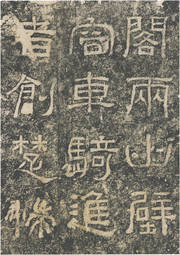 閣兩山壁
容車騎進
者創楚